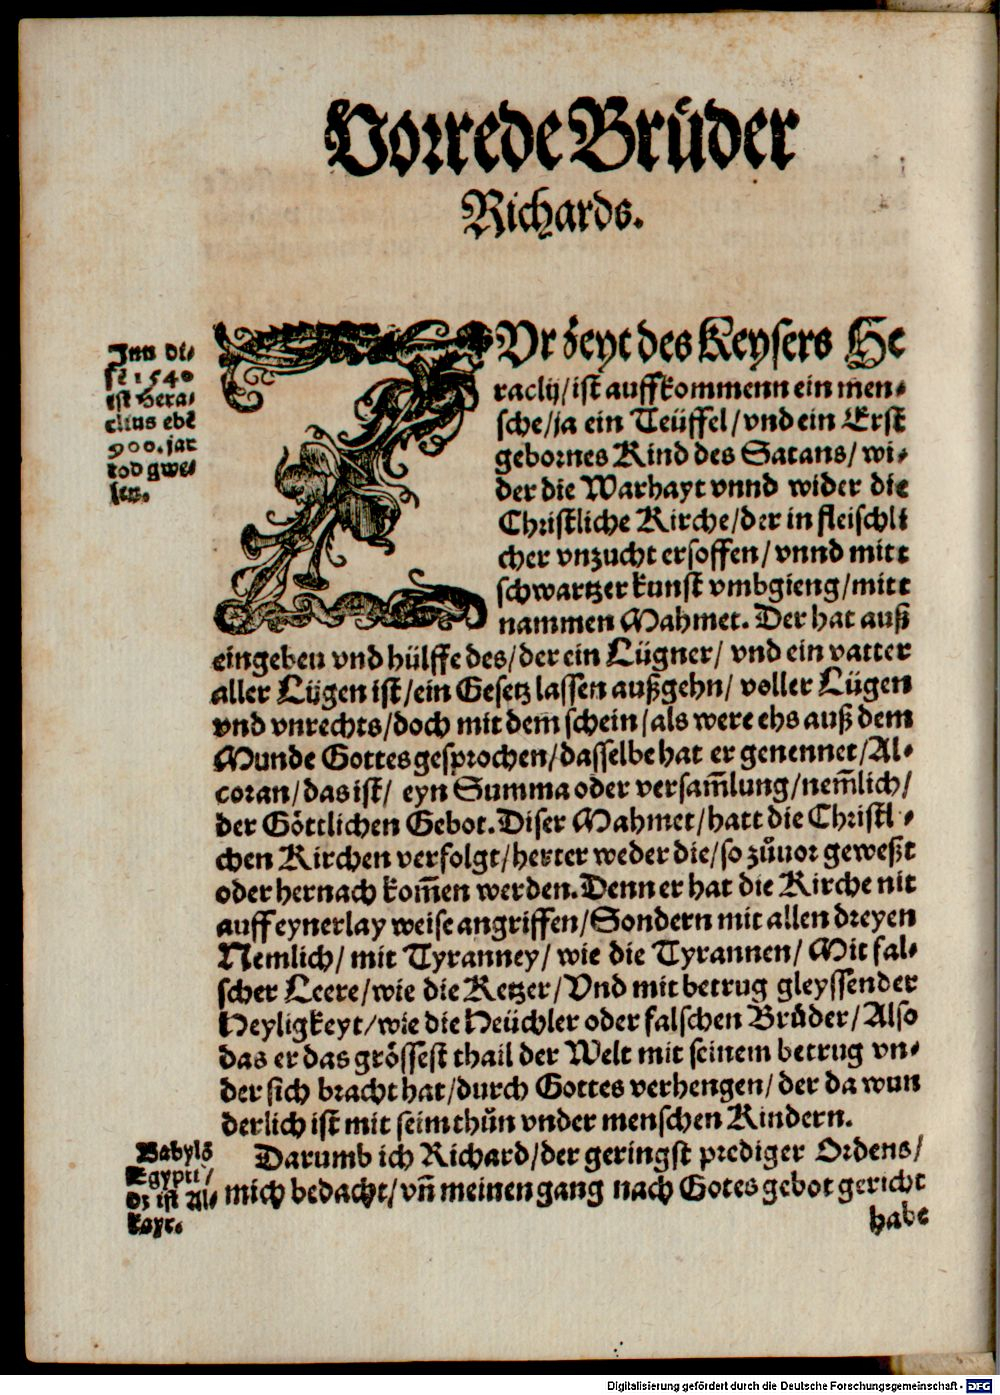 Vorrede Brůder
Richards.
Inn di-
sē 1540
ist Hera-
clius ebē
900. jar
tod gwe-
sen.
ZUr zeyt des Keysers He
raclij/ist auffkommenn ein men-
sche/ja ein Teüffel/vnd ein Erst
gebornes Kind des Satans/wi-
der die Warhayt vnnd wider die
Christliche Kirche/der in fleischli
cher vnzucht ersoffen/vnnd mitt
schwartzer kunst vmbgieng/mitt
nammen Mahmet. Der hat auß
eingeben vnd hülffe des/der ein Lügner/ vnd ein vatter
aller Lügen ist/ein Gesetz lassen außgehn/ voller Lügen
vnd vnrechts/doch mit dem schein/als were ehs auß dem
Munde Gottes gesprochen/dasselbe hat er genennet/Al-
coran/das ist/ eyn Summa oder versam̄lung/nem̄lich/
der Göttlichen Gebot. Diser Mahmet/hatt die Christl-
chen Kirchen verfolgt/herter weder die/so zůuor geweßt
oder hernach kom̄en werden. Denn er hat die Kirche nit
auff eynerlay weise angriffen/Sondern mit allen dreyen
Nemlich/ mit Tyranney/ wie die Tyrannen/ Mit fal-
scher Leere/wie die Ketzer/Vnd mit betrug gleyssender
Heyligkeyt/wie die Heüchler oder falschen Brůder/Also
das er das grössest thail der Welt mit seinem betrug vn-
der sich bracht hat/durch Gottes verhengen/der da wun
derlich ist mit seim thůn vnder menschen Kindern.
Babylō
Egypti/
dz ist Al-
kayr.
Darumb ich Richard/der geringst prediger Ordens/
mich bedacht/vn̄ meinen gang nach Gotes gebot gericht
habe
Digitalisierung gefördert durch die Deutsche Forschungsgemeinschaft - DFG